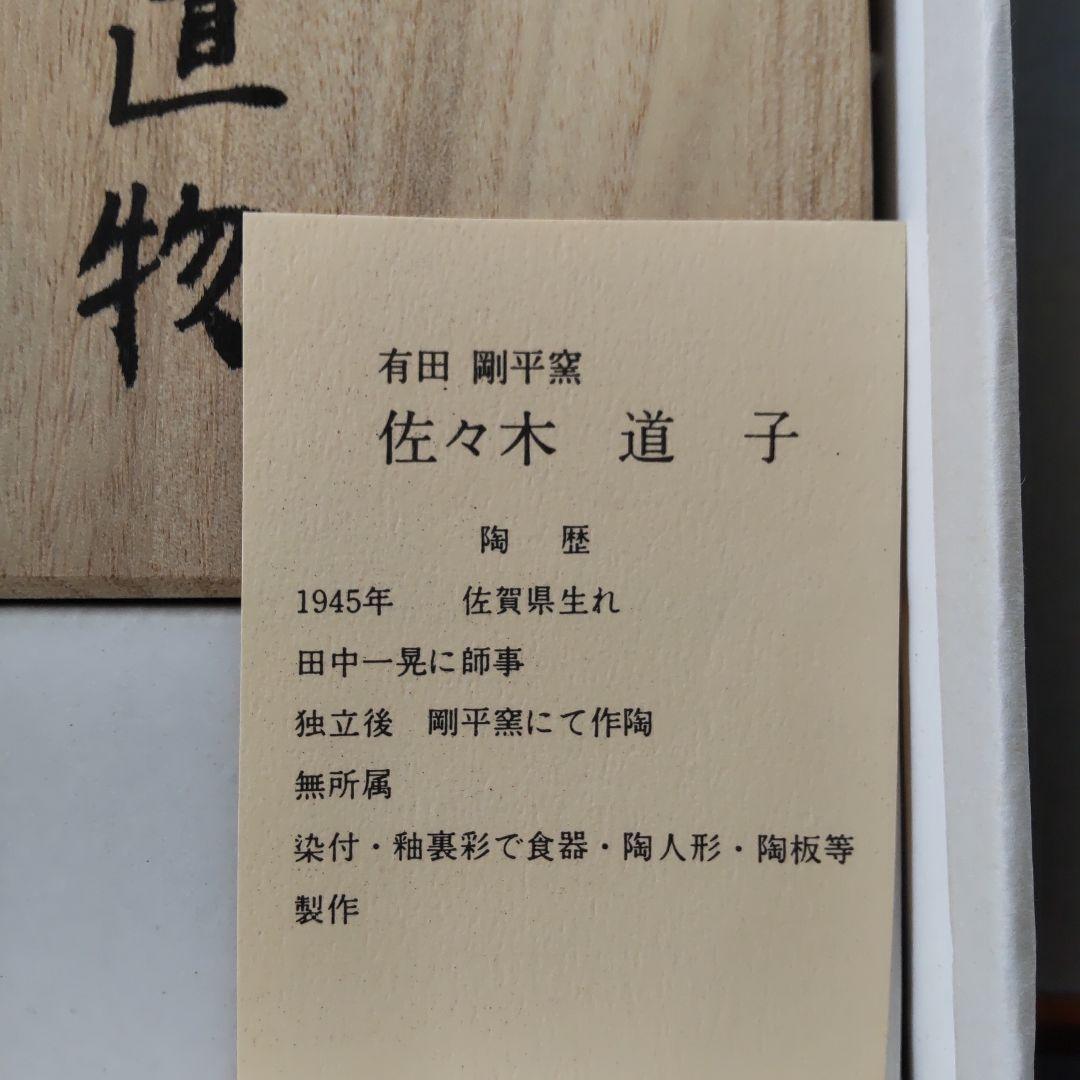 物
有田 剛平窯
佐々木 道子
陶歴
1945年 佐賀県生れ
田中一晃に師事
独立後 剛平窯にて作陶
無所属
染付・釉裏彩で食器・陶人形・陶板等
製作